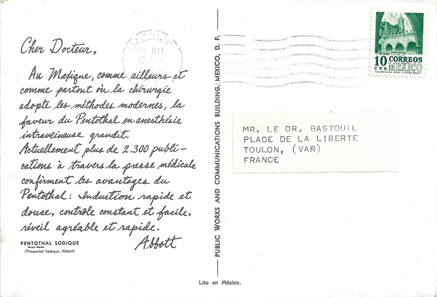 Cher Docteur,
Au Mexique, comme ailleurs et
comme partout où la chirurgie
adopte les méthodes modernes, la
faveur du Pentothal en anesthésie
intraveineuse grandit.
Actuellement, plus de 2.300 publi-
cations à travers la presse médicale
confirment les avantages du
Pentothal: Induction rapide et
douce, contrôle constant et facile,
réveil agréable et rapide.
Abbott
PENTOTHAL SODIQUE
(Thiopental Sodique, Abbott)
PUBLIC WORKS AND COMMUNICATIONS BUILDING, MEXICO, D. F.
10
CTS
CORREOS
MEXICO
MR. LE DR. BASTOUIL
PLACE DE LA LIBERTE
TOULON, (VAR)
FRANCE
Lito en México.